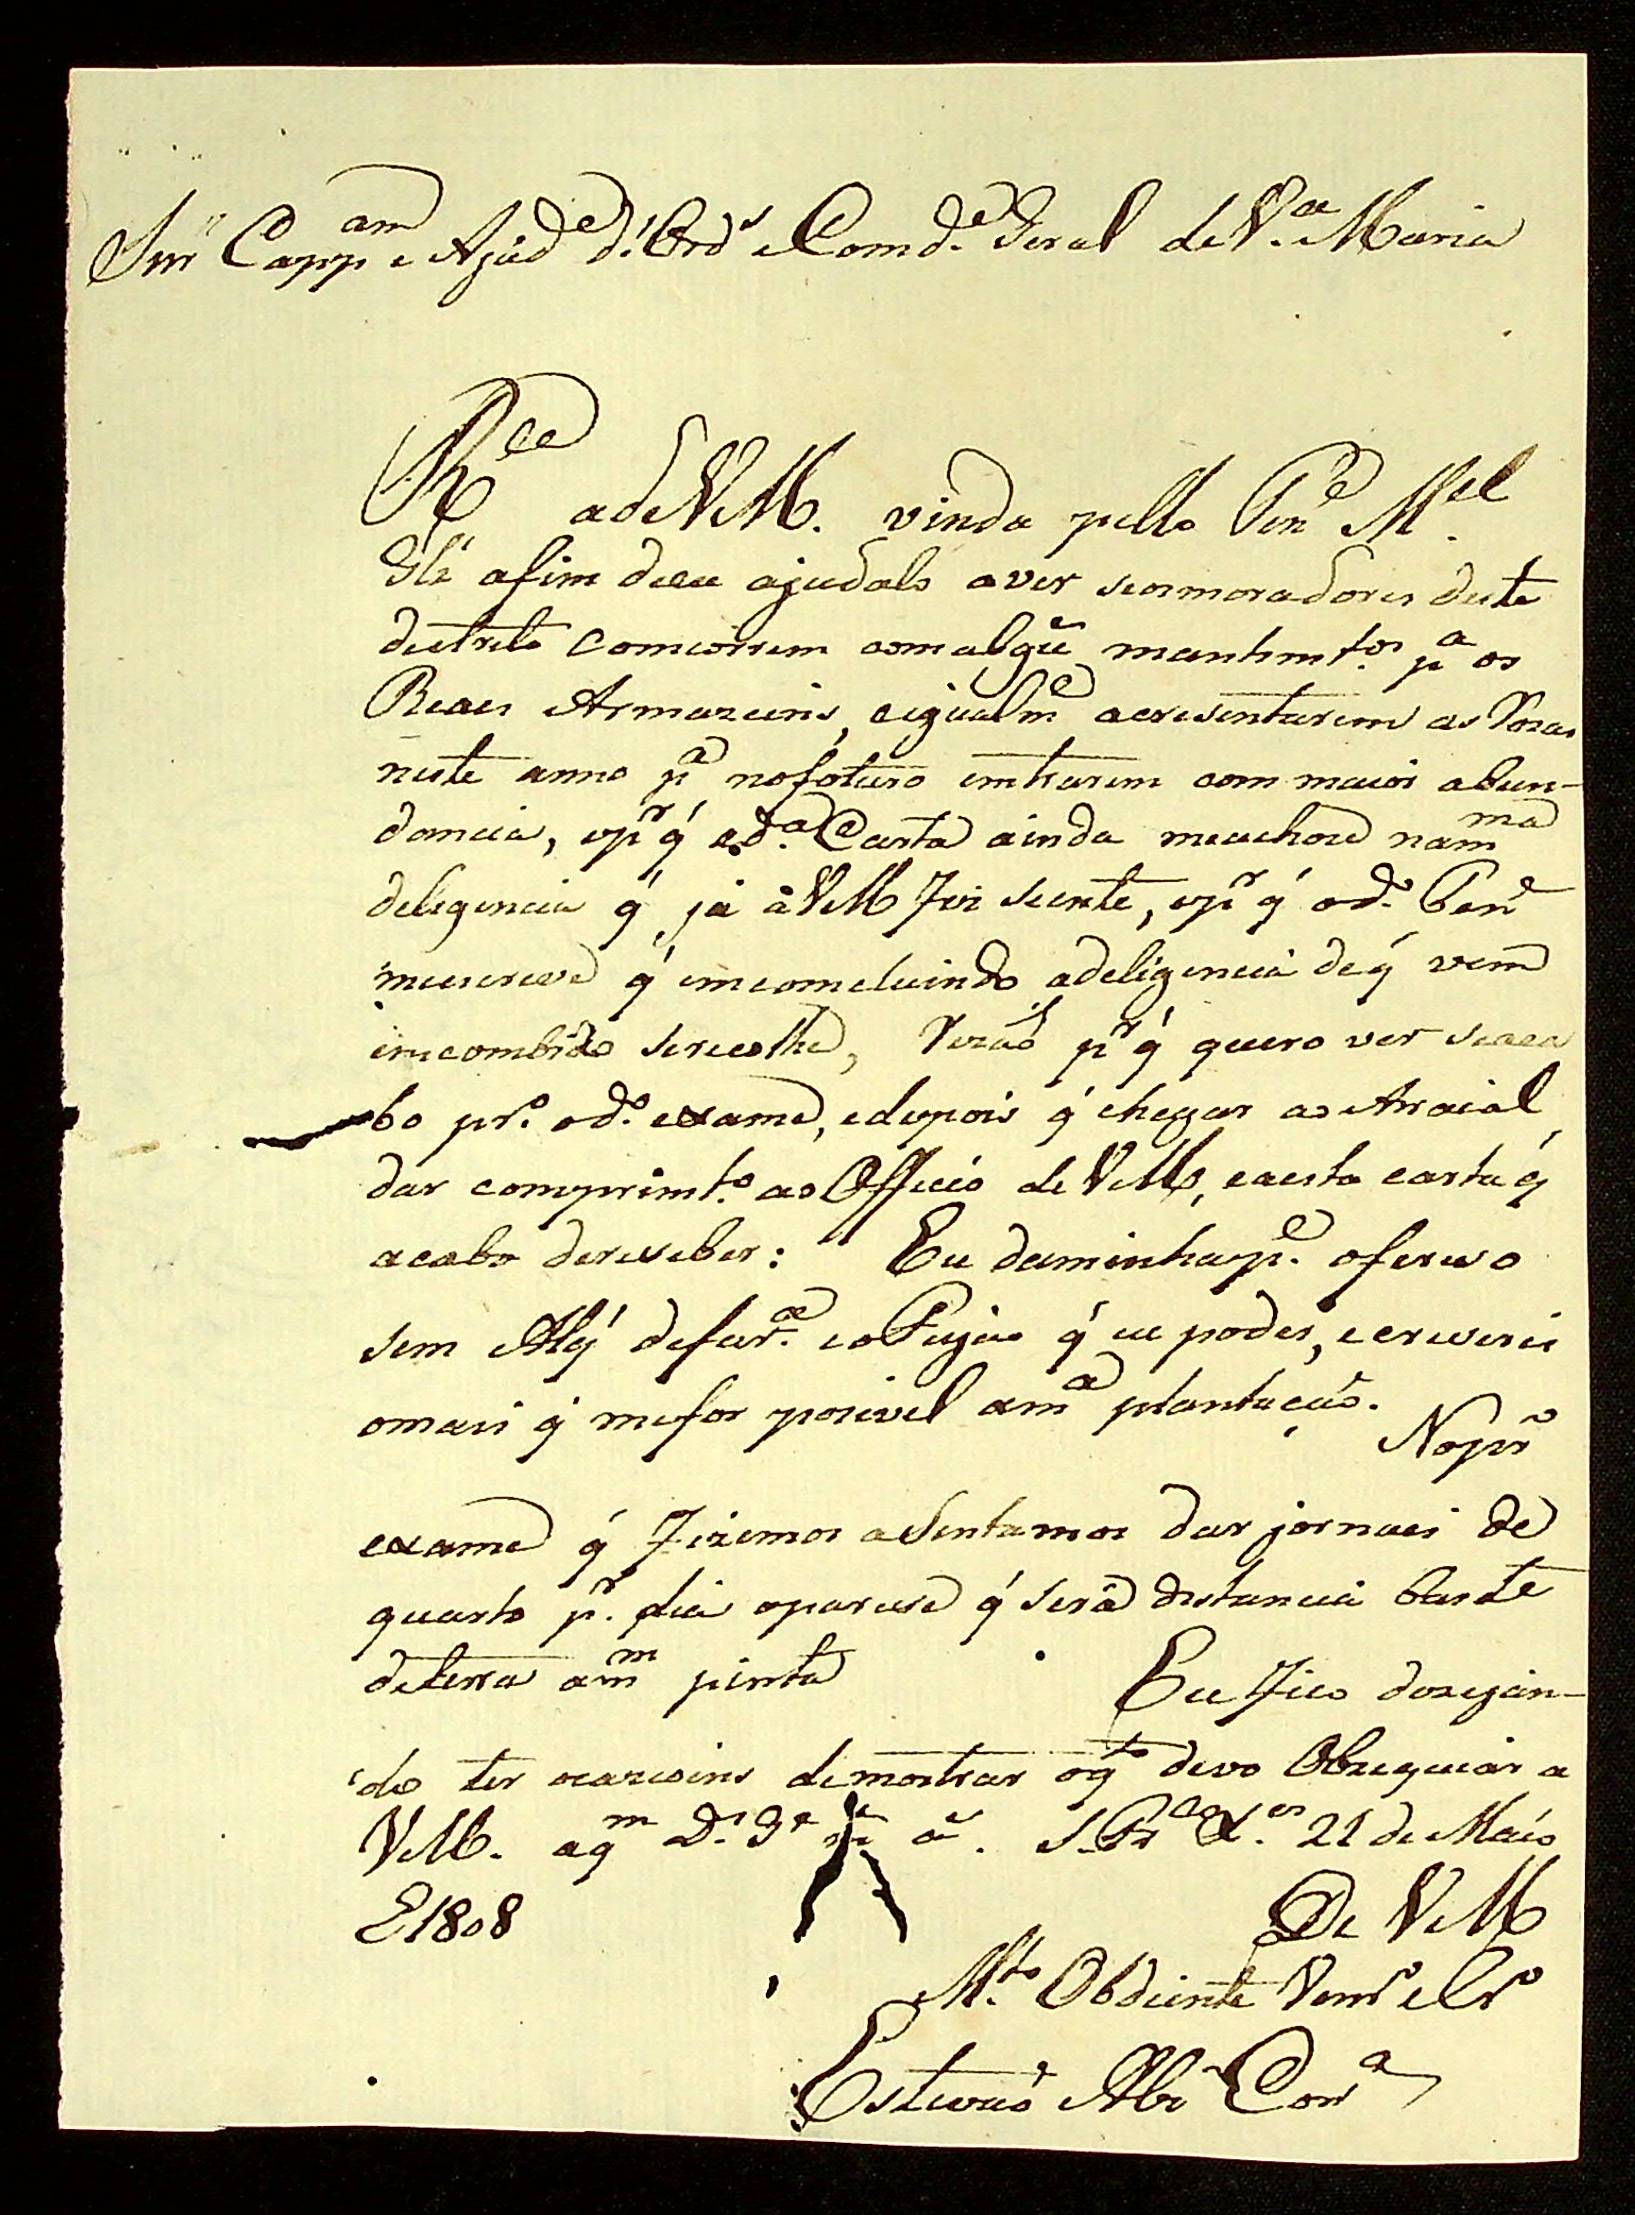 Snr Cappam e Ajude d' Ords e Comde Geral de Va Maria
Rce a de VM. vinda pello Tene Mel
afim deeu ajudalo a ver seos moradores deste
destrito comcorrem com algũ mantimtos pa os
Reaes Armazeins, e igualme acresentarem as Rosas
neste anno pa nofoturo emtrarem com maior abun-
dancia, epr q' a da Carta ainda meachou na mma
deligencia q' já a VM Fiz siente, epr q' o do Tene
meescreve q' emcomcluindo adeligencia deq' vem
imcombido serecolhe, Rezaõ pr q' quero ver seaca
bo pro o do exame, edepois q' chegar ao Arraial,
dar comprimto ao Officio de VM, eaesta carta q'
acabo dereseber: Eu daminha pe ofereso
sem Alqs defara e o Feijaõ q' eu poder, e creserei
omais q' mefor posivel a ma plantaçaõ. Nopro
exame q' Fizemos aSentamos dar jornaes de
quarto pr dia eparese q' Será distancia baste
deterra a mm pinta Eu Fico dezejan-
do ter ocazioins demostrar oqto devo Obzequiar a
VM. aqm Ds Ge ms as. 21 de Maio
E1808 De VM
Mto Obdiente Venor e Cro
Estevaõ Alvr Corra